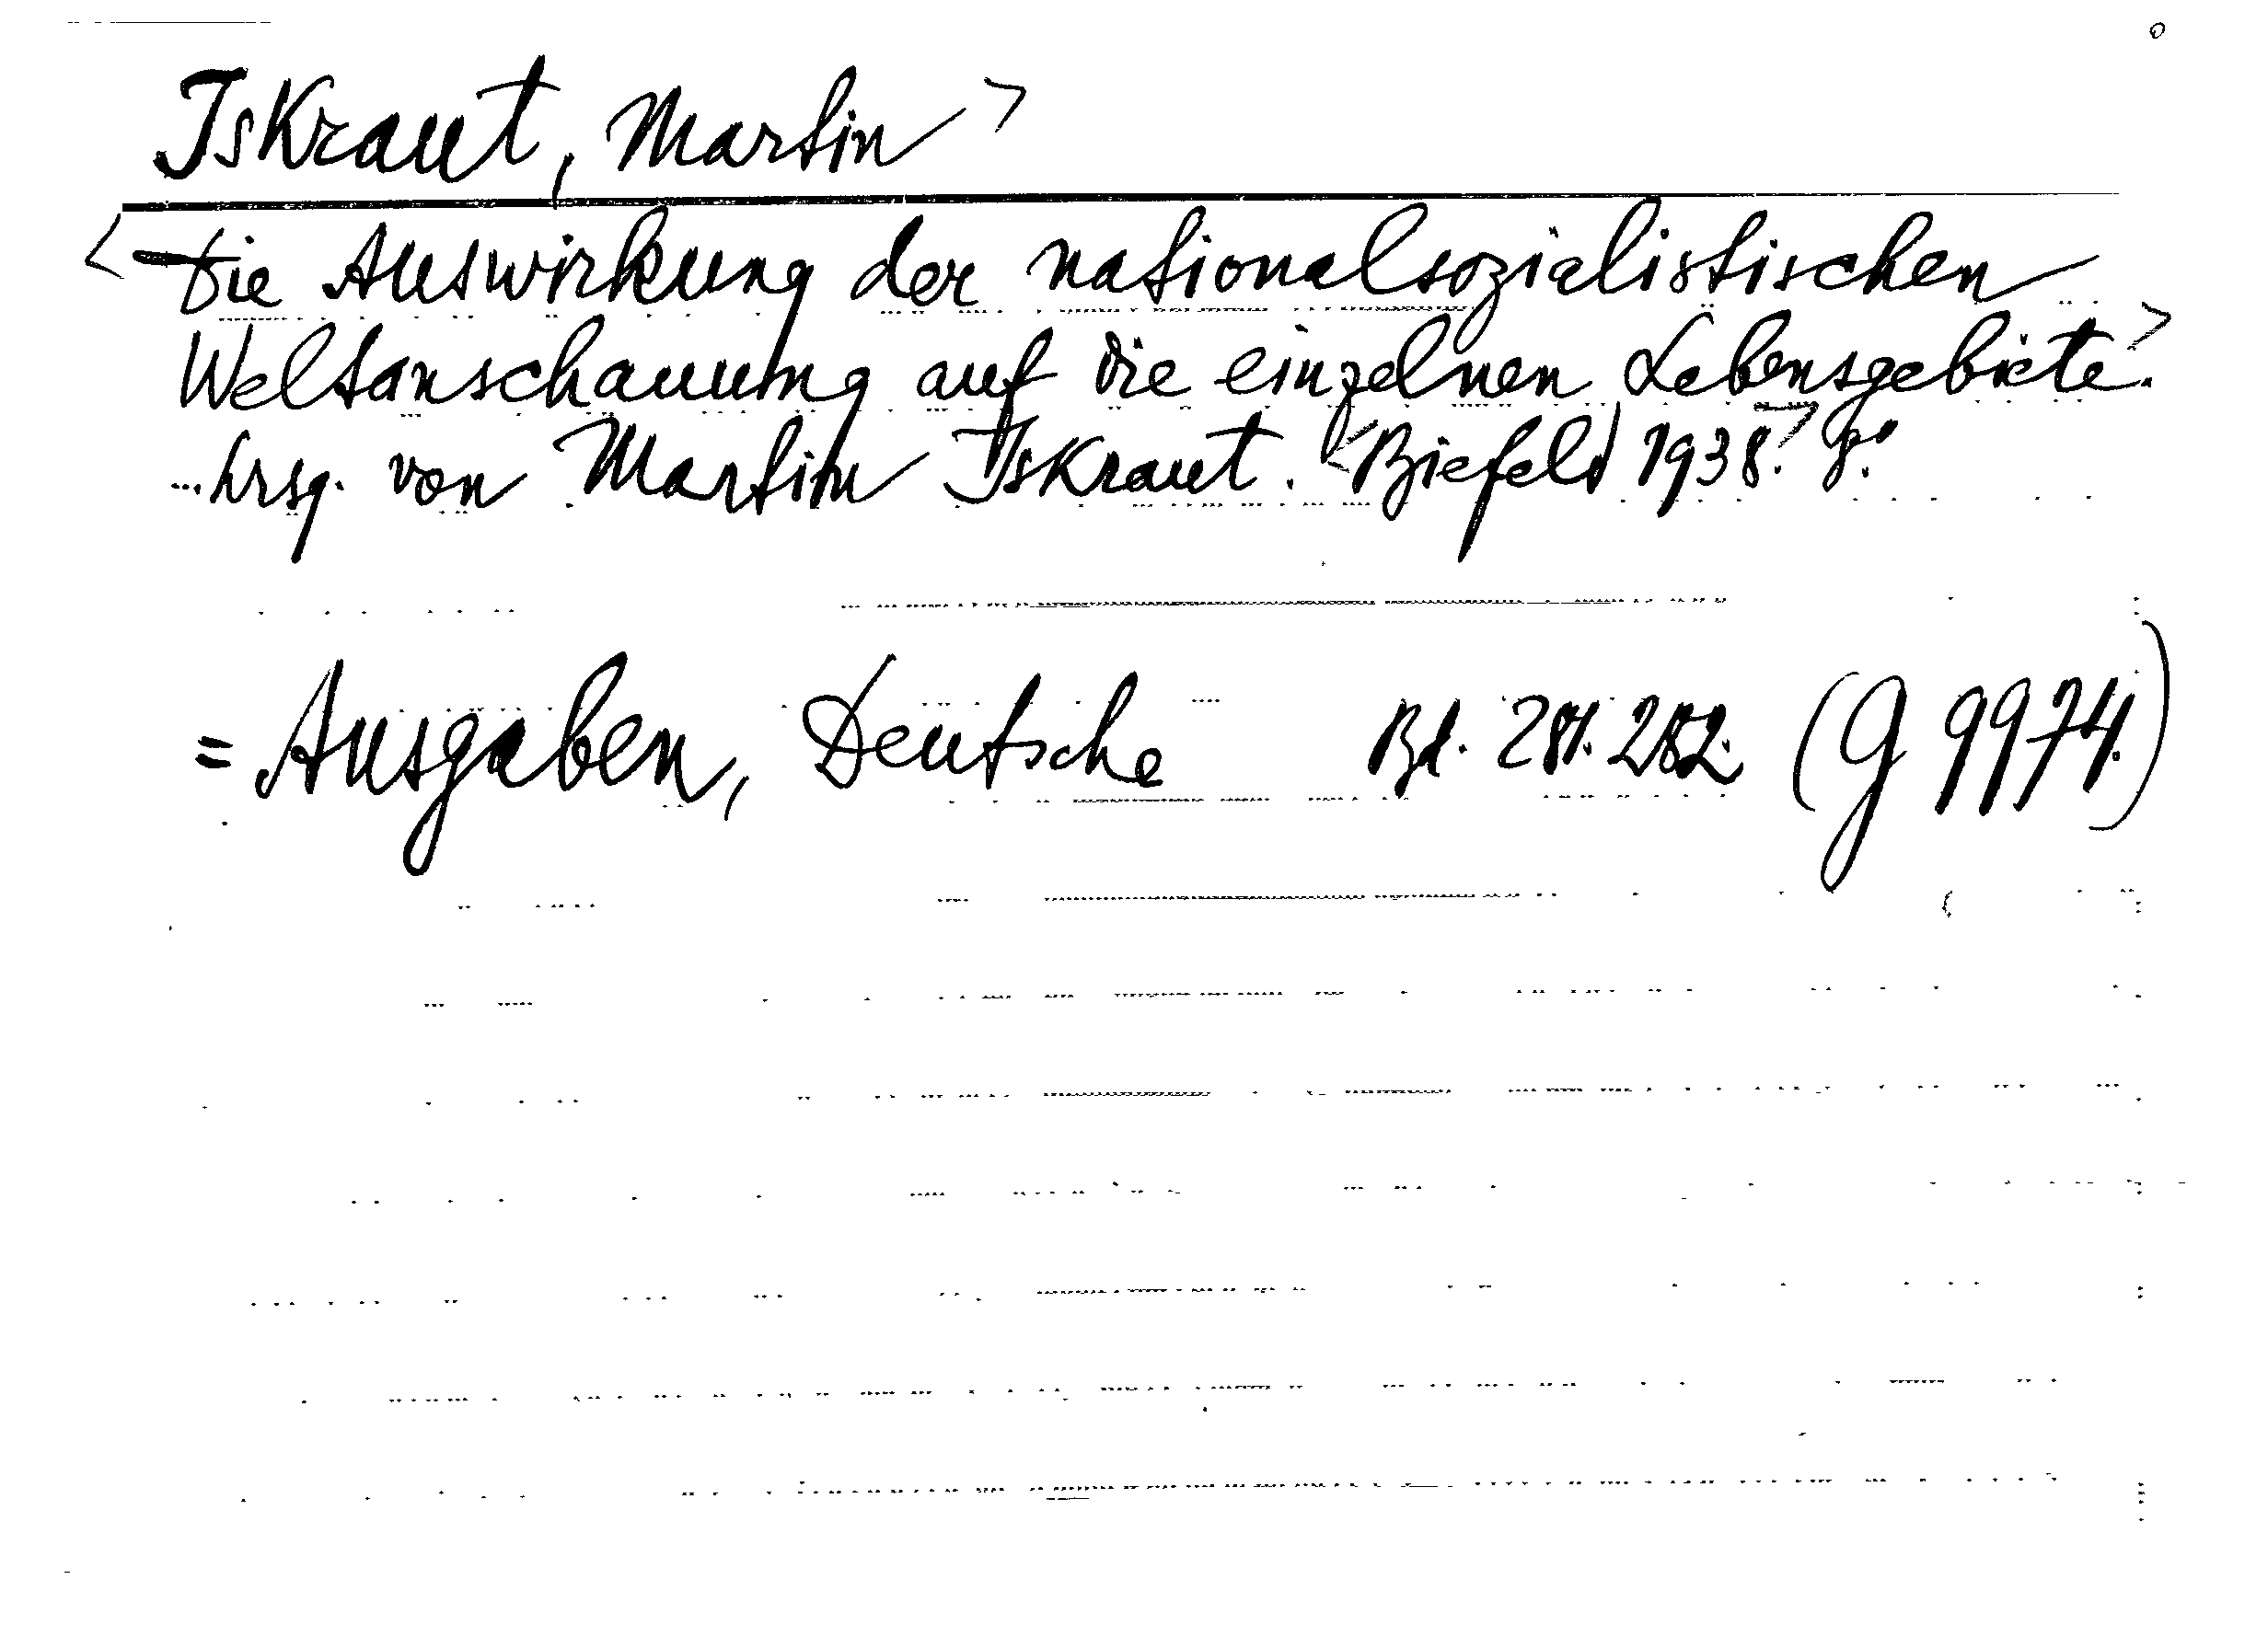 Iskraut, Martin>
<Die Auswirkung der nationalsozialistischen
Weltanschauung auf die einzelnen Lebensgebiete.>
...hrsg. von Martin Iskraut. <Biefeld 1938.> 8.°
= Ausgaben, Deutsche Bd. 281. 282. (G 9974.)